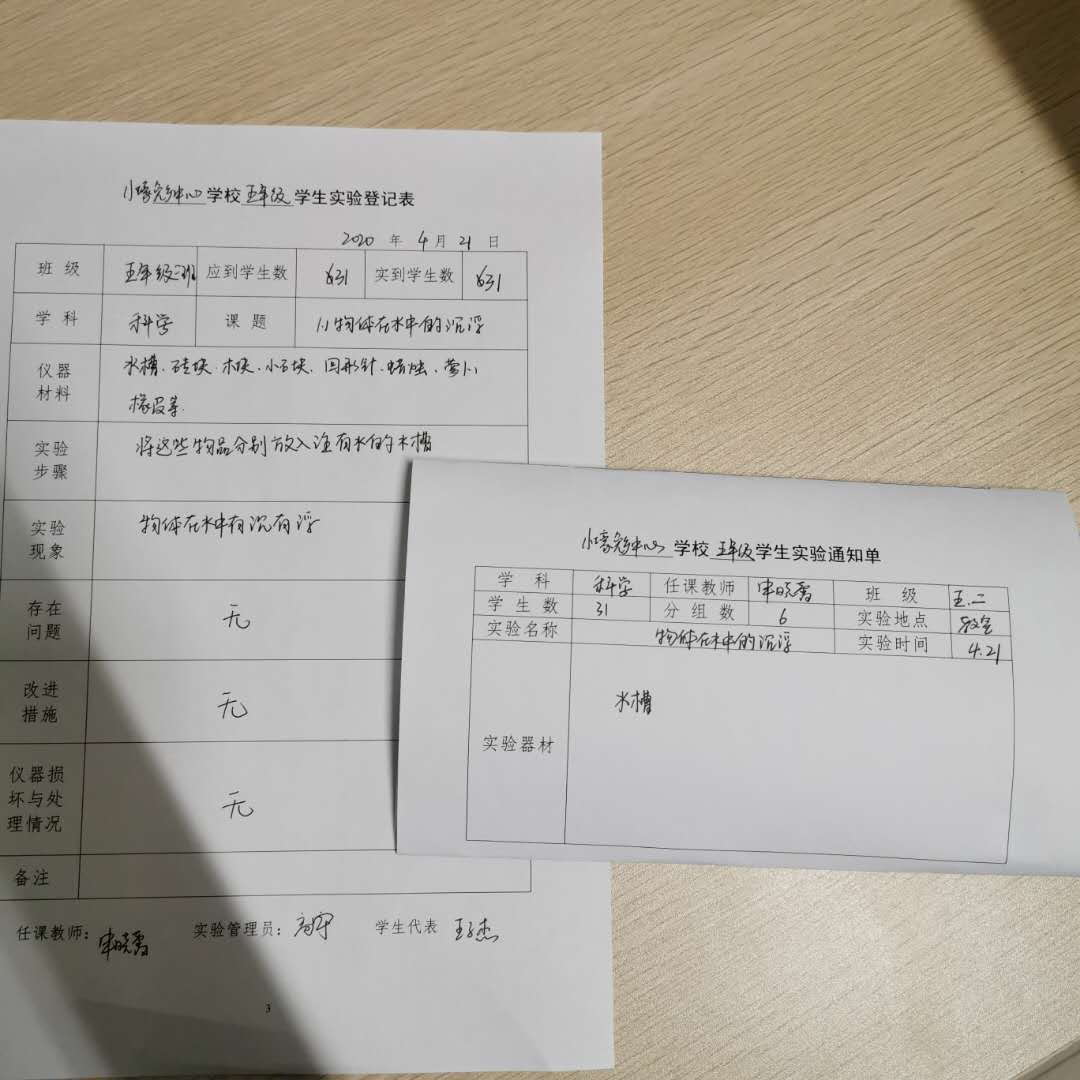 中心学校五年级学生实验登记表
2020年4月21日
班级 五年级二班 应到学生数 31 实到学生数 31
学科 科学 课题 1.1物体在水中的沉浮
仪器材料 水槽、砖块、木块、小石块、回形针、蜡烛、萝卜
橡皮等
实验步骤 将这些物品分别放入注有水的水槽
实验现象 物体在水中有沉有浮
存在问题 无
改进措施 无
仪器损坏与处理情况 无
备注
任课教师：申晓霞 实验管理员： 学生代表 王子杰
3
中心学校五年级学生实验通知单
学科 科学 任课教师 申晓霞 班级 五.二
学生数 31 分组数 6 实验地点 教室
实验名称 物体在水中的沉浮 实验时间 4.21
实验器材 水槽